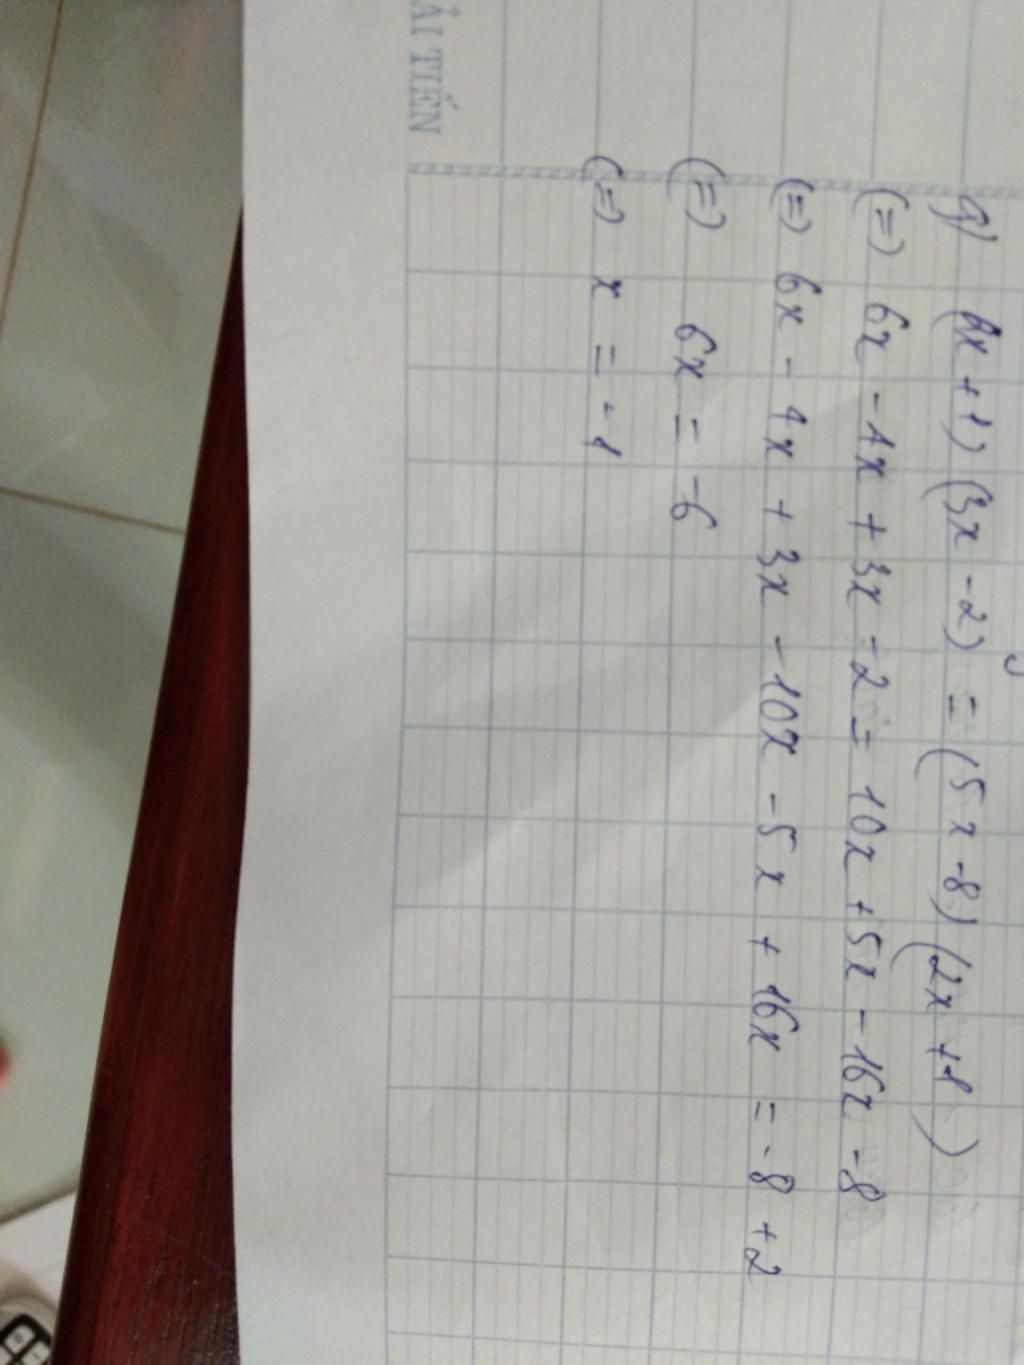 g) (2x + 1) (3x - 2) = (5x - 8) (2x + 1)
(=) 6x - 4x + 3x - 2 = 10x + 5x - 16x - 8
(=) 6x - 4x + 3x - 10x - 5x + 16x = - 8 + 2
(=) 6x = -6
(=) x = - 1
ẢI TIẾN